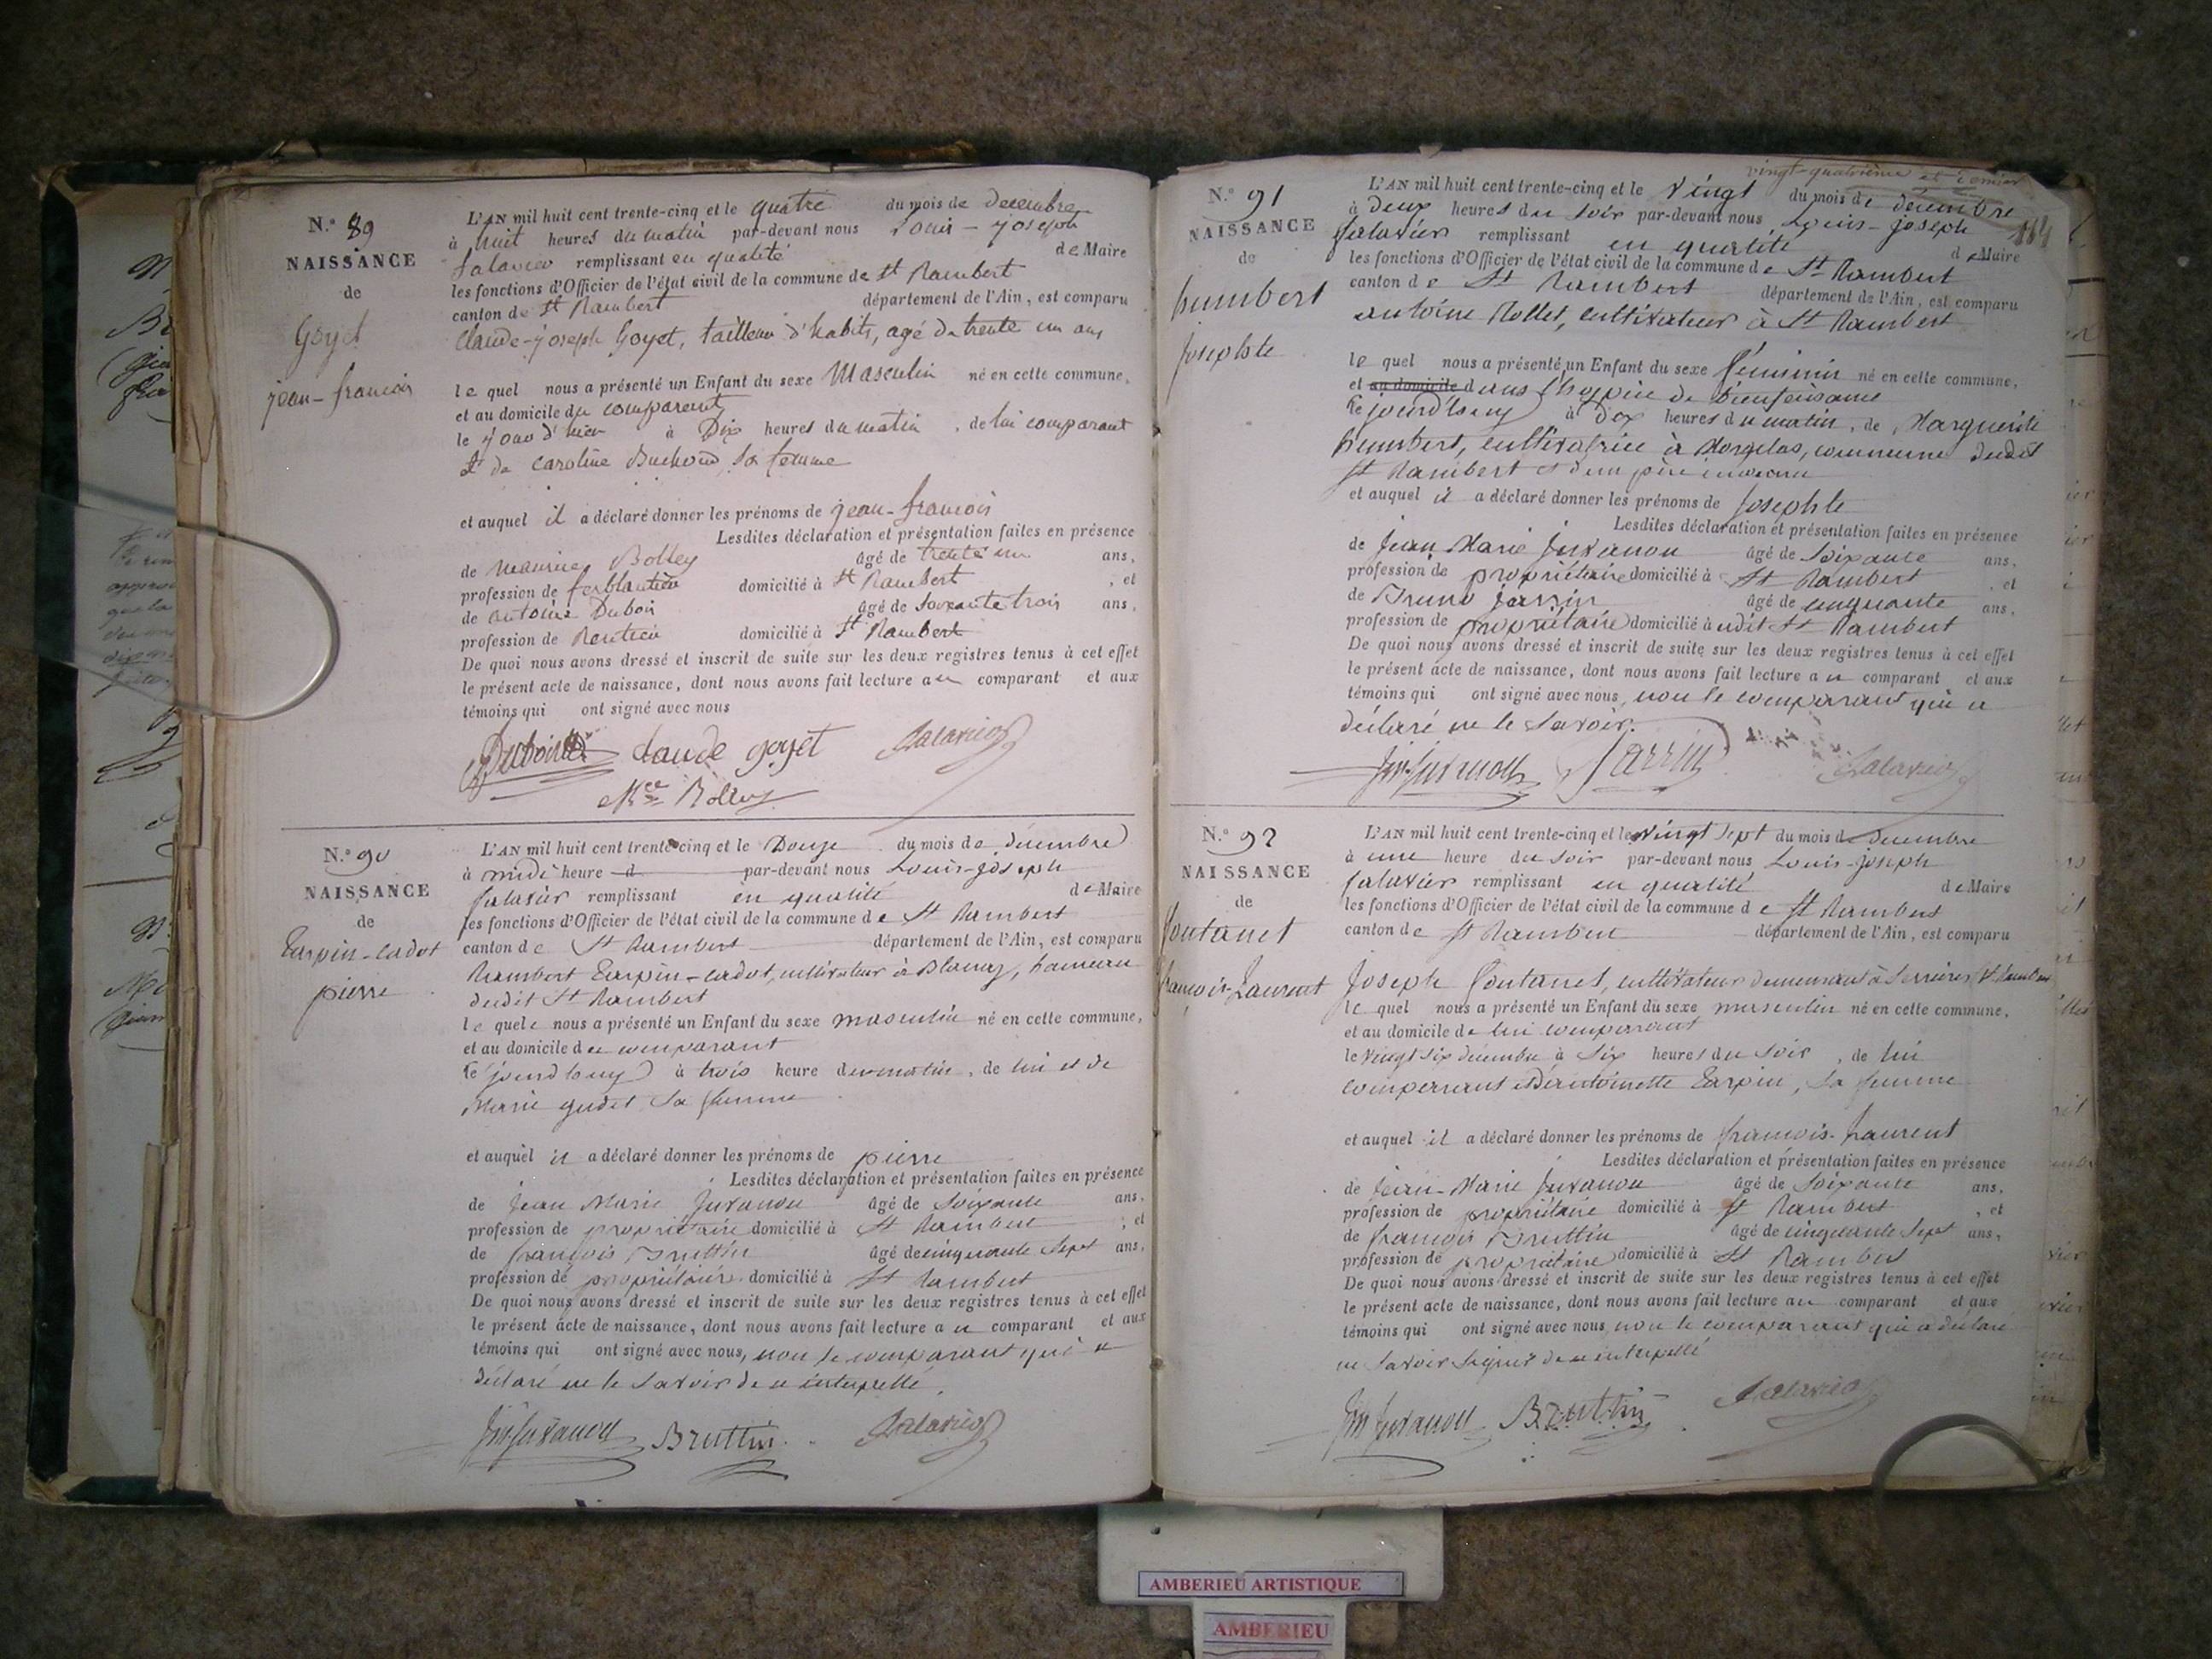 N.° 89
NAISSANCE
de
Goyet
jean-francois
L'AN mil huit cent trente-cinq et le quatre du mois de decembre
à huit heures du matin par-devant nous Louis-joseph
Salavier remplissant en qualité de Maire
les fonctions d'Officier de l'état civil de la commune de St Rambert
canton de St Rambert département de l'Ain, est comparu
Claude-joseph Goyet, tailleur d'habits, agé de trente un ans
lequel nous a présenté un Enfant du sexe Masculin né en cette commune,
et au domicile du comparant
le jour d'hier à Dix heures du matin, de lui comparant
et de Caroline sa femme
et auquel il a déclaré donner les prénoms de jean-francois
Lesdites déclaration et présentation faites en présence
de maurice Bolley âgé de trente un ans,
profession de ferblantier domicilié à St Rambert, et
de antoine Dubois âgé de soixante trois ans,
profession de Rentier domicilié à St Rambert
De quoi nous avons dressé et inscrit de suite sur les deux registres tenus à cet effet
le présent acte de naissance, dont nous avons fait lecture au comparant et aux
témoins qui ont signé avec nous
Dubois Claude goyet Salavier
Mce Bolley
N.° 90
NAISSANCE
de
Tarpin-cadot
pierre
L'AN mil huit cent trente-cinq et le Douze du mois de décembre
à midi heure d par-devant nous Louis-joseph
Salavier remplissant en qualité de Maire
les fonctions d'Officier de l'état civil de la commune de St Rambert
canton de St Rambert département de l'Ain, est comparu
Rambert Tarpin-cadot, cultivateur à Blanaz, hameau
dudit St Rambert
lequel nous a présenté un Enfant du sexe masculin né en cette commune,
et au domicile du comparant
le jourd'huy à trois heure du matin, de lui et de
Marie gudet sa femme
et auquel il a déclaré donner les prénoms de pierre
Lesdites déclaration et présentation faites en présence
de Jean Marie Juvanon âgé de Soixante ans,
profession de propriétaire domicilié à St Rambert, et
de françois Bruttin âgé de cinquante sept ans,
profession de propriétaire domicilié à St Rambert
De quoi nous avons dressé et inscrit de suite sur les deux registres tenus à cet effet
le présent acte de naissance, dont nous avons fait lecture au comparant et aux
témoins qui ont signé avec nous, non le comparant qui a
déclaré ne le savoir de ce interpellé.
Jm Juvanon Bruttin Salavier
vingt-quatrième et dernier
184
N.° 91
NAISSANCE
de
humbert
josephte
L'AN mil huit cent trente-cinq et le vingt du mois de décembre
à deux heures du soir par-devant nous Louis-joseph
Salavier remplissant en qualité de Maire
les fonctions d'Officier de l'état civil de la commune de St Rambert
canton de St Rambert département de l'Ain, est comparu
antoine Rollet, cultivateur à St Rambert
lequel nous a présenté un Enfant du sexe féminin né en cette commune,
et au domicile dans l'hospice de bienfaisance
le jourd'huy à dix heures du matin, de Marguerite
humbert, cultivatrice à Morgelas, commune dudit
St Rambert et d'un père inconnu
et auquel il a déclaré donner les prénoms de josephte
Lesdites déclaration et présentation faites en présence
de Jean Marie Juvanon âgé de Soixante ans,
profession de propriétaire domicilié à St Rambert, et
de Bruno Jarrin âgé de cinquante ans,
profession de propriétaire domicilié à udit St Rambert
De quoi nous avons dressé et inscrit de suite sur les deux registres tenus à cet effet
le présent acte de naissance, dont nous avons fait lecture au comparant et aux
témoins qui ont signé avec nous, non le comparant qui a
déclaré ne le savoir.
Jm Juvanon Jarrin Salavier
N.° 92
NAISSANCE
de
fontanet
francois-Laurent
L'AN mil huit cent trente-cinq et le vingt sept du mois de decembre
à une heure du soir par-devant nous Louis-joseph
Salavier remplissant en qualité de Maire
les fonctions d'Officier de l'état civil de la commune de St Rambert
canton de St Rambert département de l'Ain, est comparu
Joseph fontanet, cultivateur demeurant à Serrières, St Rambert
lequel nous a présenté un Enfant du sexe masculin né en cette commune,
et au domicile de lui comparant
le vingt six décembre à six heures du soir, de lui
comparant et d'antoinette Tarpin, sa femme
et auquel il a déclaré donner les prénoms de francois-Laurent
Lesdites déclaration et présentation faites en présence
de Jean-Marie Juvanon âgé de Soixante ans,
profession de propriétaire domicilié à St Rambert, et
de françois Bruttin âgé de cinquante sept ans,
profession de propriétaire domicilié à St Rambert
De quoi nous avons dressé et inscrit de suite sur les deux registres tenus à cet effet
le présent acte de naissance, dont nous avons fait lecture au comparant et aux
témoins qui ont signé avec nous, non le comparant qui a déclaré
ne savoir signer de ce interpellé
Jm Juvanon Bruttin Salavier
AMBERIEU ARTISTIQUE
AMBERIEU